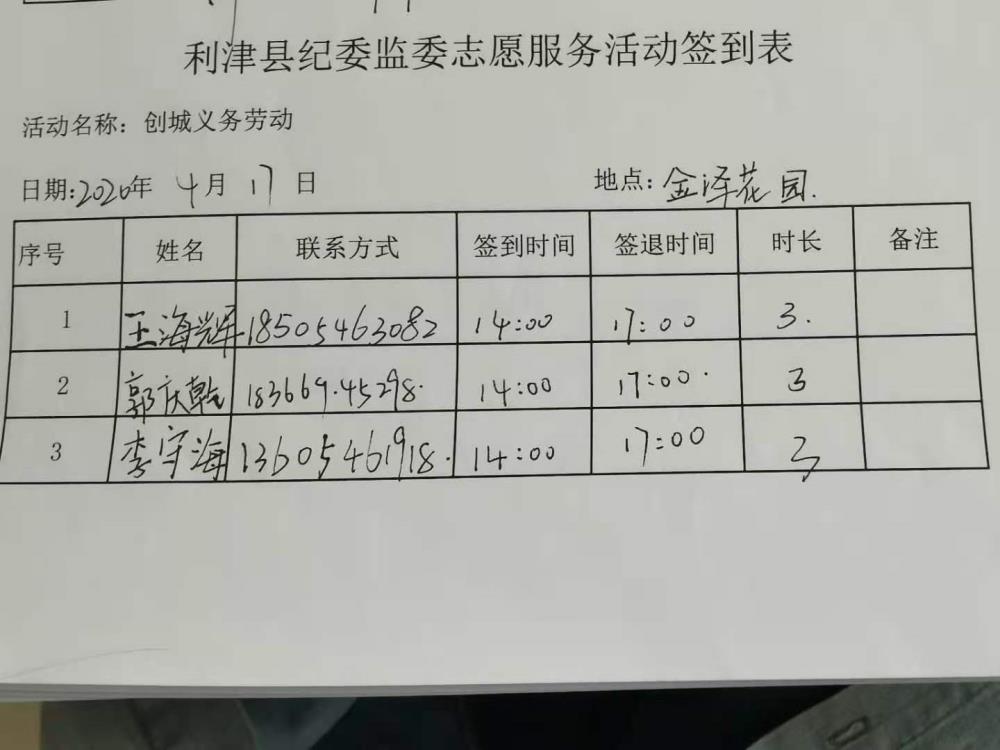 利津县纪委监委志愿服务活动签到表
活动名称：创城义务劳动
日期:2020年 4月 17 日 地点:金泽花园.
序号 姓名 联系方式 签到时间 签退时间 时长 备注
1 王海辉 18505463082 14:00 17:00 3.
2 郭庆乾 183669.45298. 14:00 17:00. 3
3 李守海 13605461918. 14:00 17:00 3